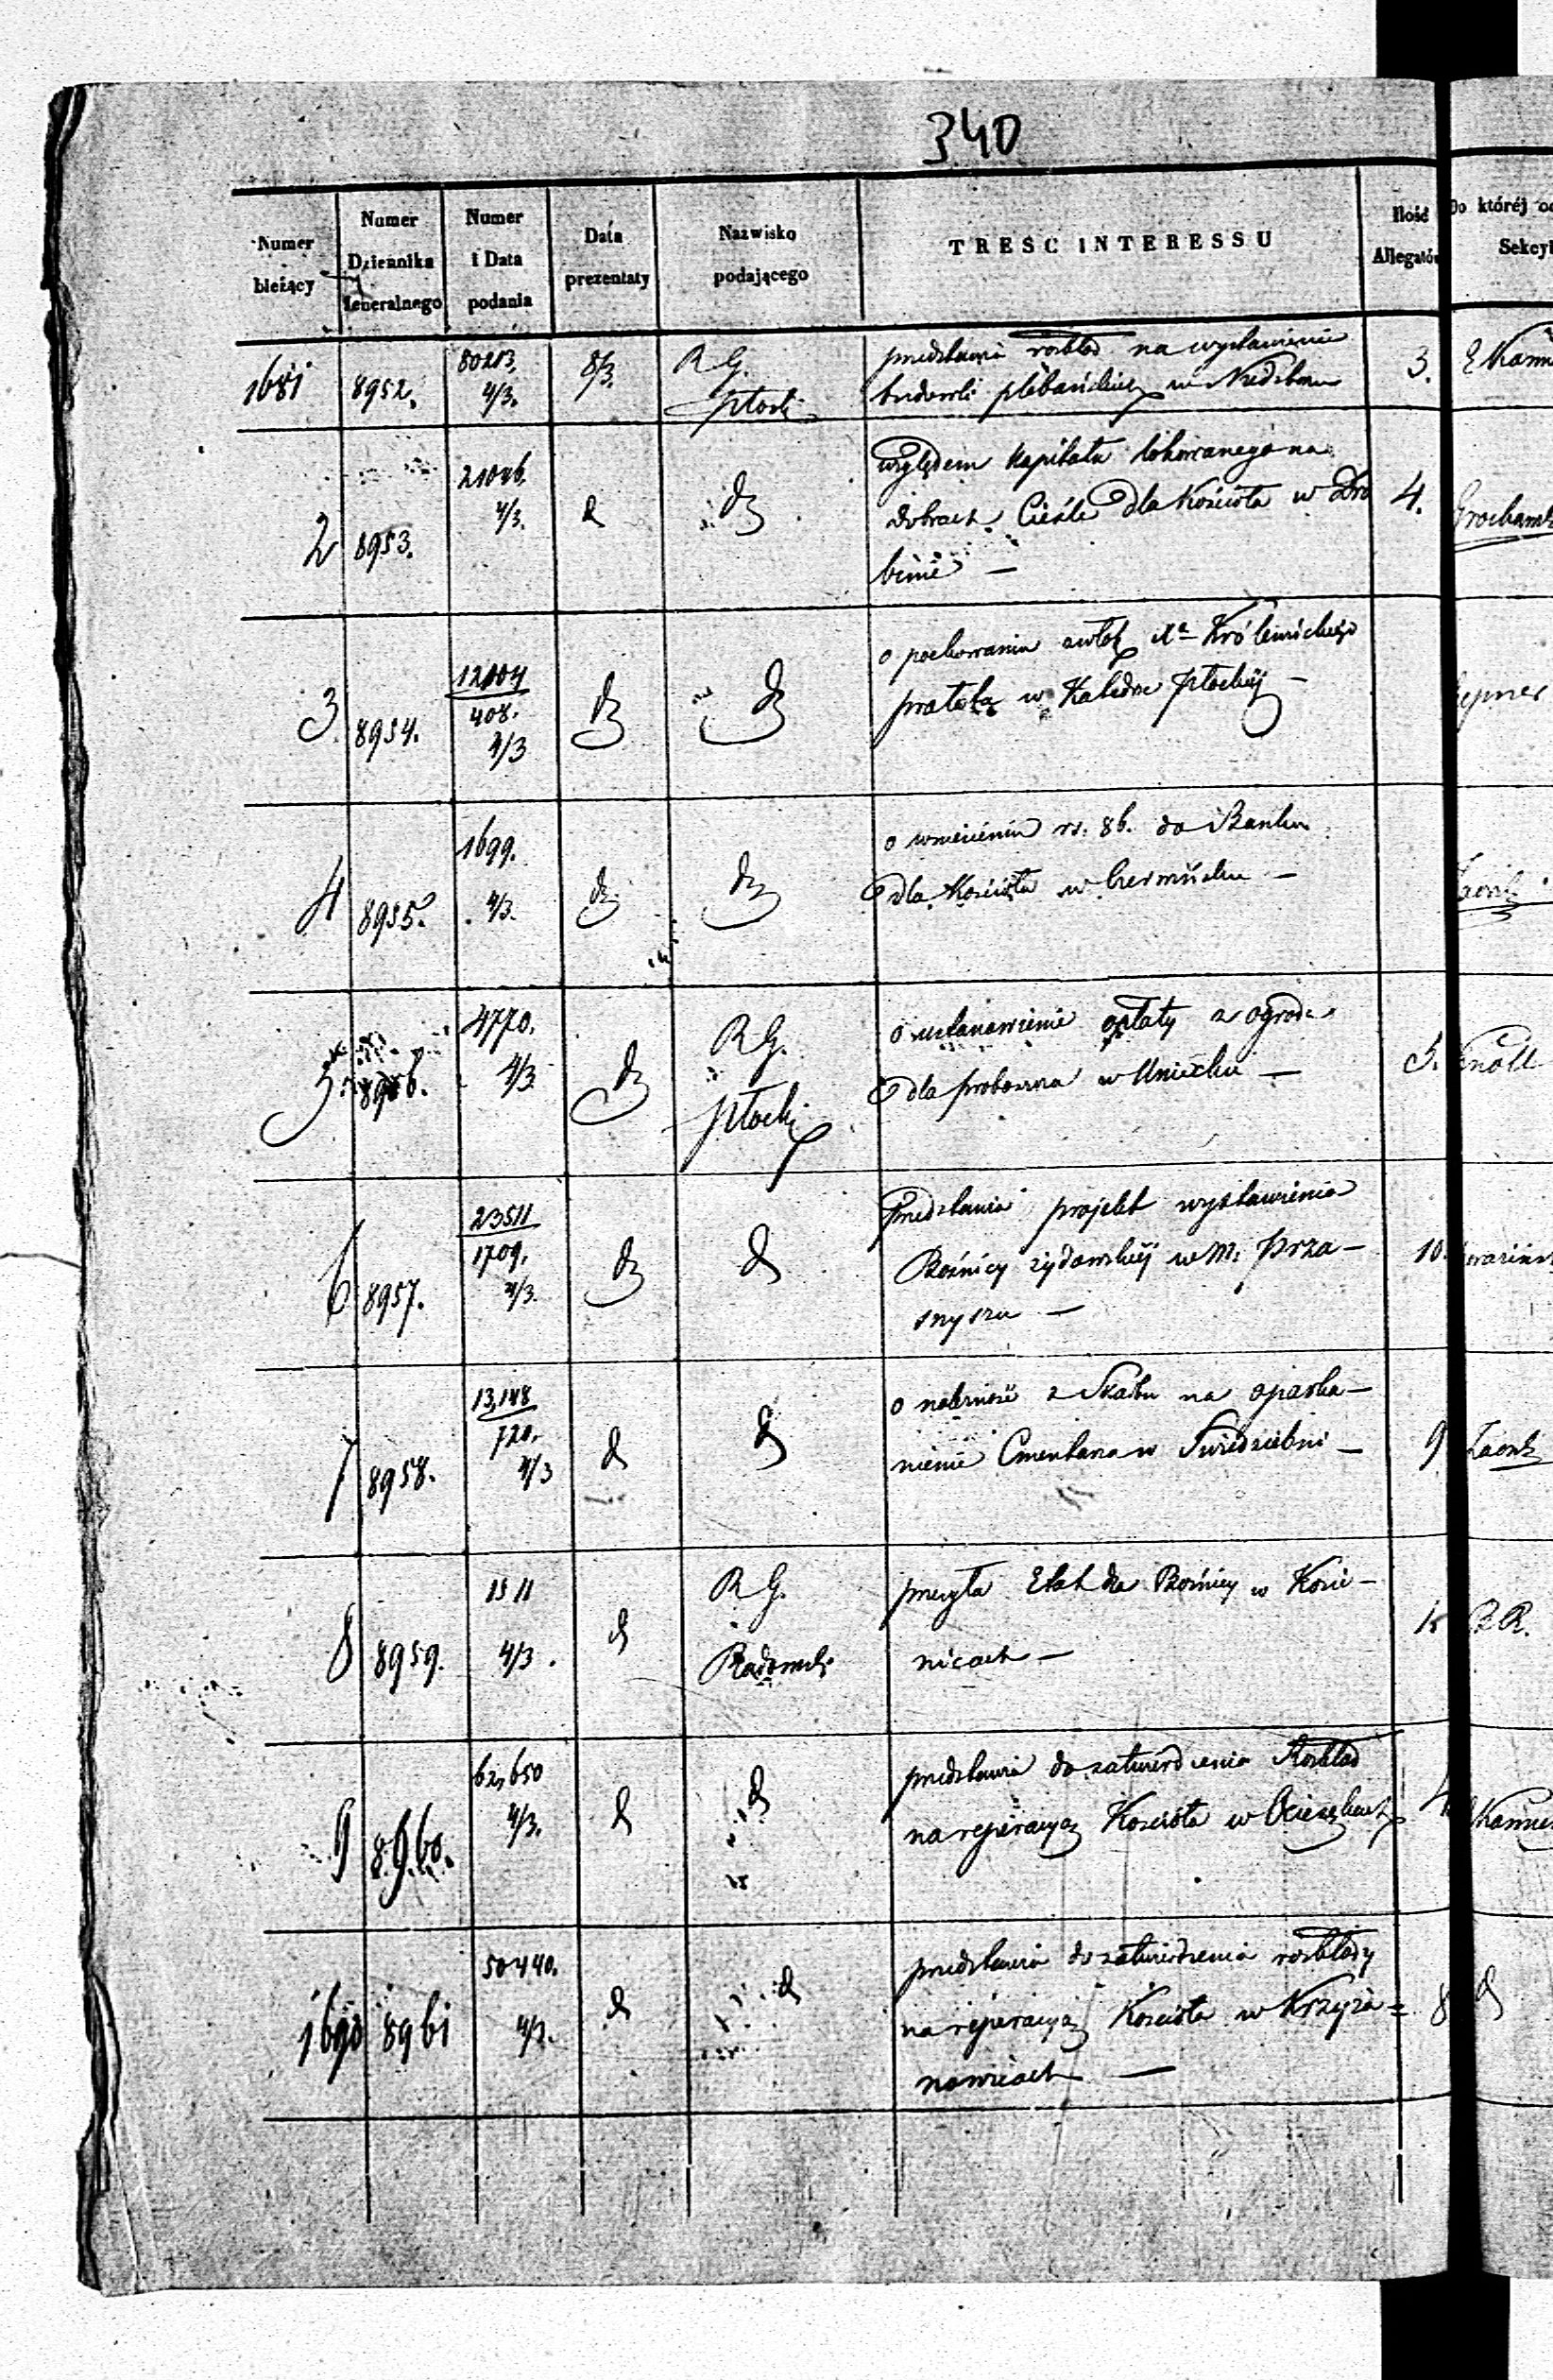 340
Numer bieżący | Numer Dziennika Jeneralnego | Numer i Data podania | Data prezentaty | Nazwisko podającego | TREŚĆ INTERESSU | Ilość Allegatów | Do której od
Sekcyi
1681 | 8952. | 80213. 4/3. | 8/3. | R G. Płocki | przedstawia rozkład na wystawienie | 3.
budowli plebańskiej w
2 | 8953. | 4/3. | d | dz | względem kapitału lokowanego na | 4.
dobrach Cieśle dla Kościoła w Dro
binie —
3 | 8954. | 408. 4/3 | dz | dz | o pochowaniu zwłok Xa
prałata w Katedrze Płockiej —
4 | 8955. | 1699. 4/3. | dz | dz | o wniesieniu rs. 86. do Banku
dla Kościoła w Czerwińsku —
5 | 8956. | 4770. 4/3 | dz | R G. Płocki | o ustanowienie opłaty z ogrodu | 5. | Knoll
dla proboszcza w Uniecku —
6 | 8957. | 23511 1709. 4/3. | dz | d | Przedstawia projekt wystawienia | 10.
Bożnicy żydowskiej w M. Prza—
snyszu —
7 | 8958. | 13,148 720. 4/3 | d | d | o z Skarbu na oparka— | 9
nienie Cmentarza w Świedziebni —
8 | 8959. | 1511 4/3. | d | R G. Radomski | przesyła Etat dla Bożnicy w Kozie— | R R.
nicach —
9 | 8960. | 62,650 4/3. | d | d | przedstawia do zatwierdzenia Rozkład | 4
na reperacyą Kościoła w
1690 | 8961 | 50440. | d | d | przedstawia do zatwierdzenia rozkłady | 8 | d
na reperacyą Kościoła w Krzyża=
nowicach —